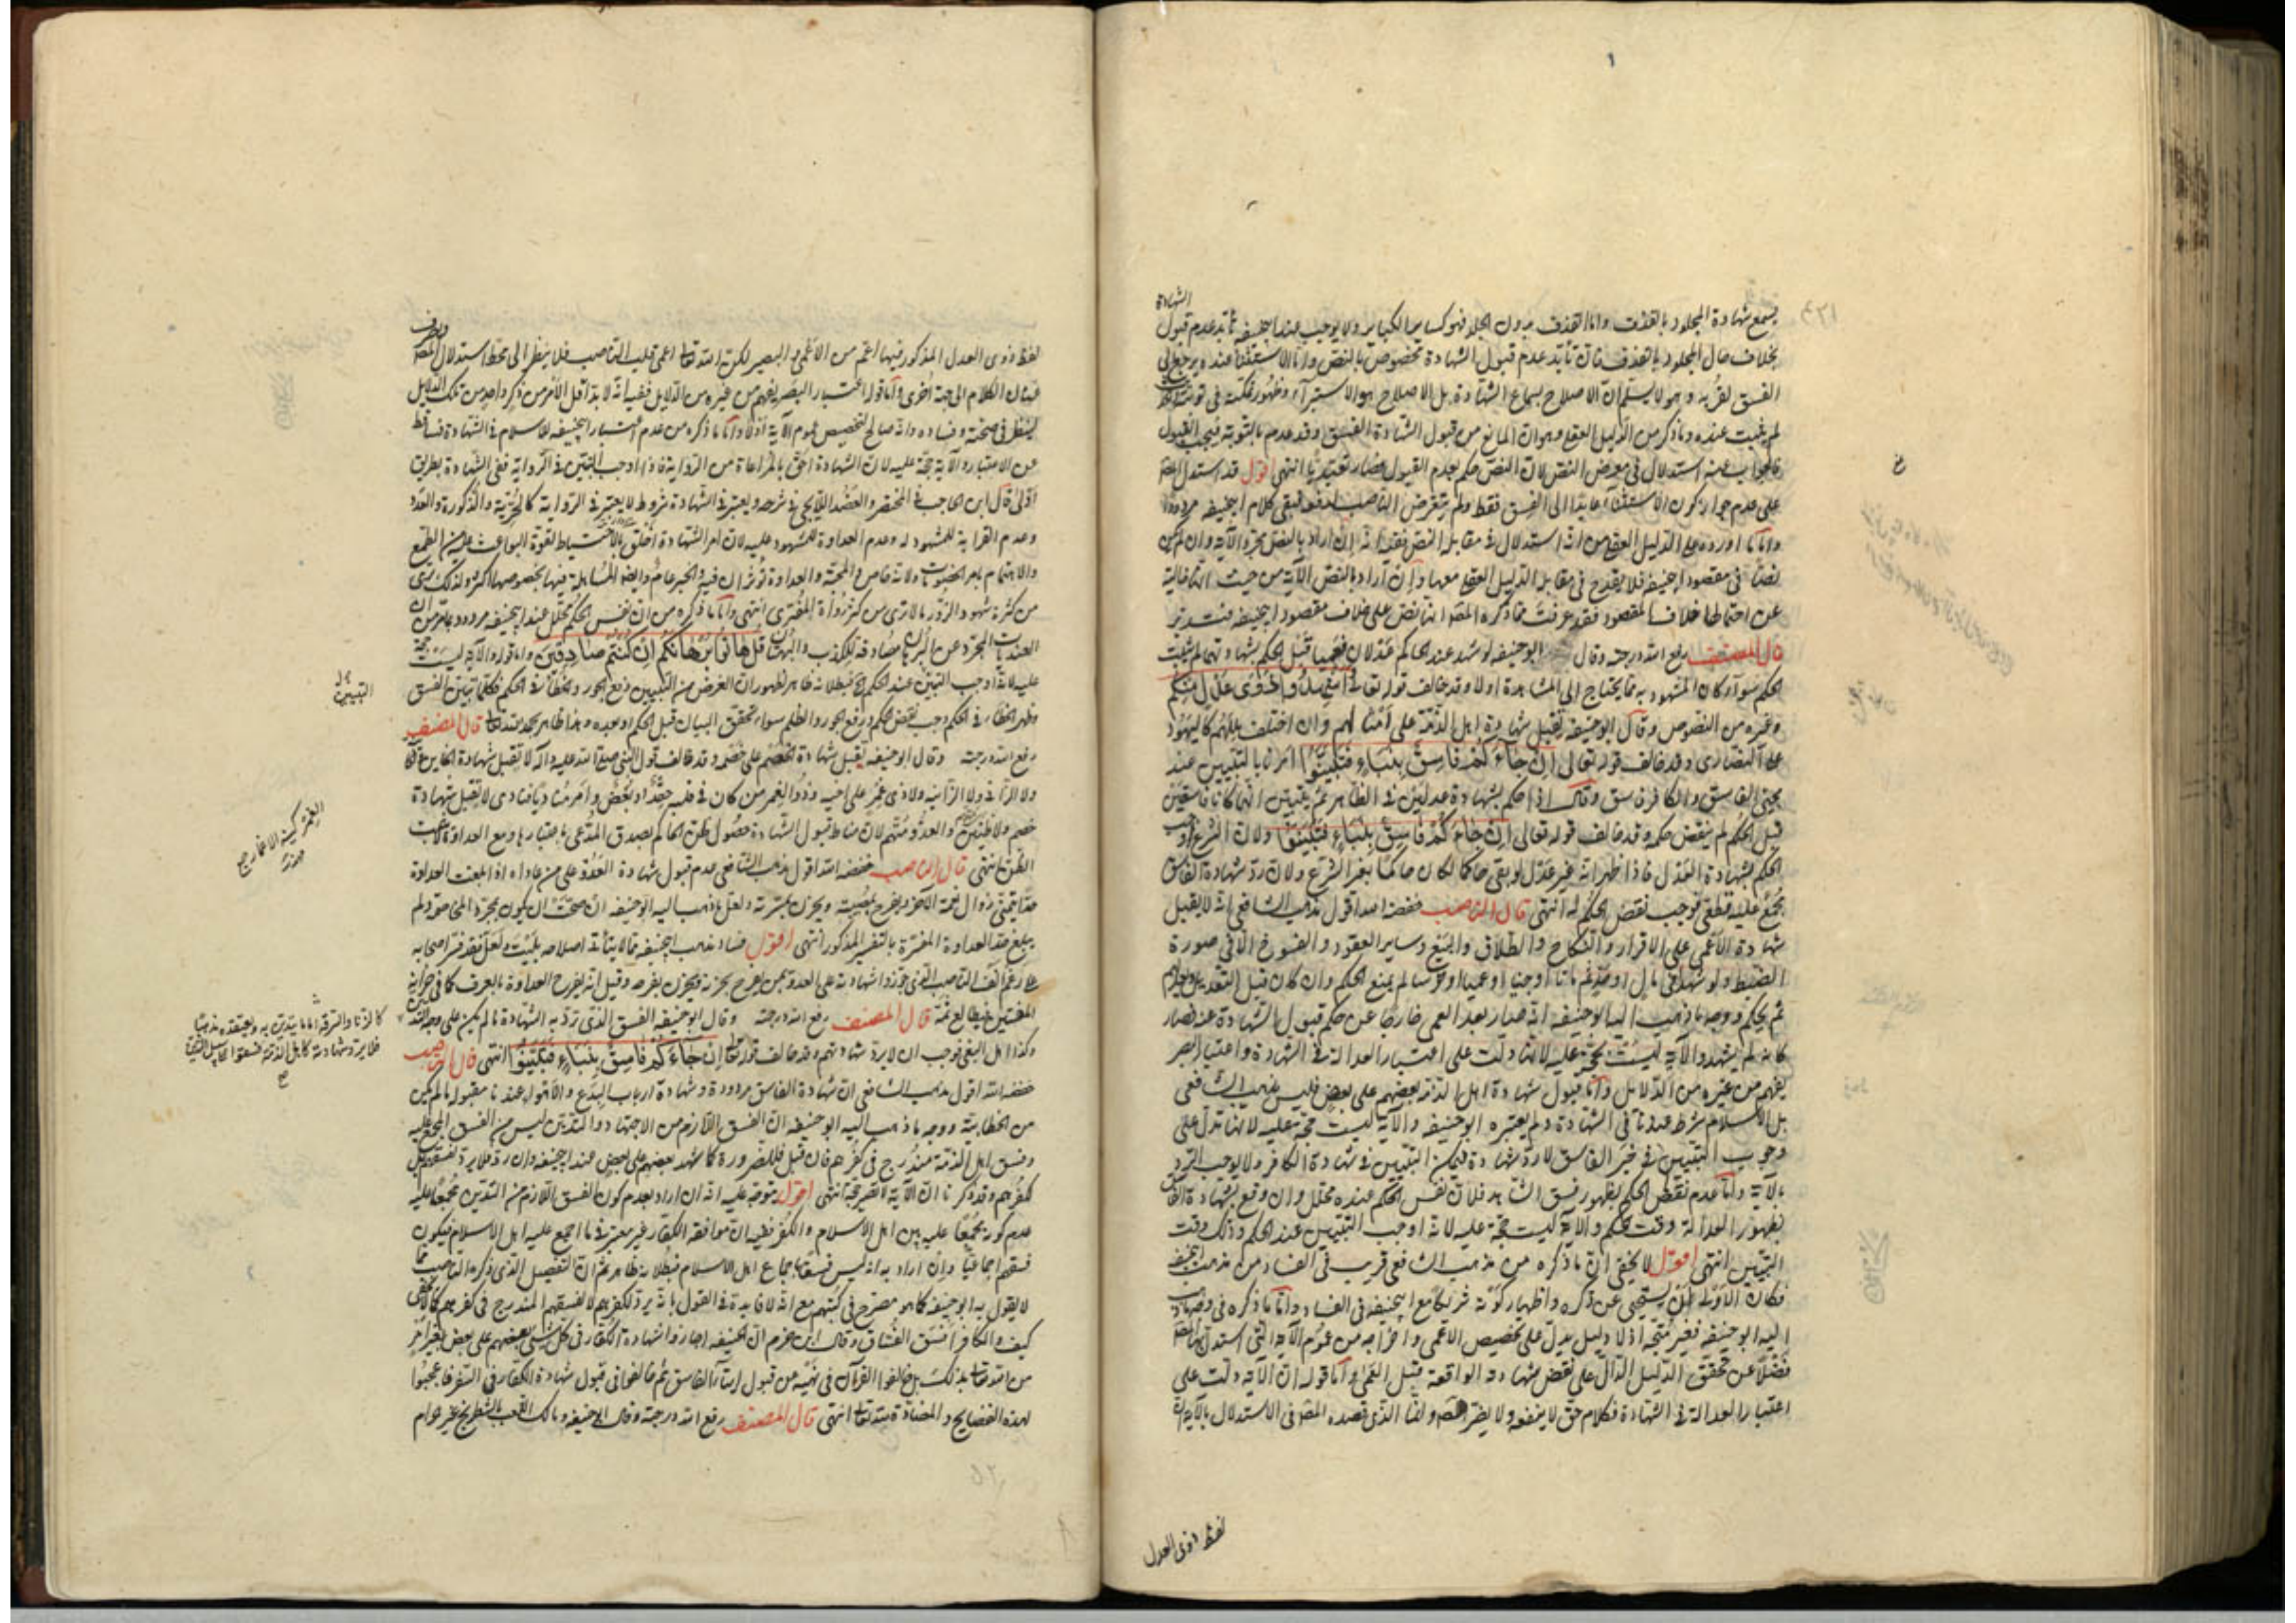 الشهادة
يسمع شهادة المجلود بالقذف واما القذف بدون الجلد فهو كساير الكباير ولا يوجب عند ابيحنيفه تأبد عدم قبول
بخلاف حال المجلود بالقذف فان تأبد عدم قبول الشهادة مخصوص بالنص واما الاستثناء عنده يرجع الى
الفسق لقربه وهو لا يسلم ان الاصلاح بسماع الشهادة بل الاصلاح هو الاستبراء وظهور
لم يثبت عنده وما ذكر من الدليل العقلي وهو ان المانع من قبول الشهادة الفسق وقد عدم بالتوبة فيجب القبول
فالجواب عنه استدلال في معرض النص لان النص حكم بعدم القبول فصار تعبديا انتهى اقول قد استدل المصنف
على عدم جواز كون الاستثناء عايدا الى الفسق فقط ولم يتعرض الناصب لدفعه فبقى كلام ابيحنيفه مردودا
واما ما اورده على الدليل العقلي من انه استدلال في مقابلة النص ففيه انه ان اراد بالنص مجرد الآية وان لم يكن
نصا في مقصود ابيحنيفه فلا يقدح في مقابلة الدليل العقلي معها وان اراد بالنص الآية من حيث انها خالية
عن احتمالها خلاف المقصود فقد عرفت مما ذكره المصـ انها نص على خلاف مقصود ابيحنيفه فتدبر
قال المصنف رفع الله درجته وقال ابوحنيفه لو شهد عند الحاكم عدلان فعميا قبل الحكم بشهادتهما لم تثبت
الحكم سواء كان المشهود به مما يحتاج الى المشاهدة اولا وقد خالف قوله تعالى واشهدوا ذوى عدل منكم
وغيره من النصوص وقال ابوحنيفه تقبل شهادة اهل الذمة على امثالهم وان اختلف مللهم كاليهود
على النصارى وقد خالف قوله تعالى ان جاءكم فاسق بنبأ فتبينوا امرنا بالتبيين عند
مجئ الفاسق والكافر فاسق وقال اذا حكم بشهادة عدلين في الظاهر ثم تبين انهما كانا فاسقين
قبل الحكم لم ينقض حكمه وقد خالف قوله تعالى ان جاءكم فاسق بنبأ فتبينوا ولان الشرع اوجب
الحكم بشهادة العدل فاذا ظهر انه غير عدل لو بقى حاكما لكان حاكما بغير الشرع ولان رد شهادة الفاسق
مجمع عليه قطعي فوجب نقض الحكم له انتهى قال الناصب خفضه الله اقول مذهب الشافعي انه لا يقبل
شهادة الاعمى على الاقرار والنكاح والطلاق والبيع وساير العقود والفسوخ الا في صورة
الضبط ولو شهدا في مال اوحد ثم ماتا او جنا او عميا او خرسا لم يمنع الحكم وان كان قبل التعديل
ثم يحكم ووجه ما ذهب اليه ابوحنيفه انه صار بعد العمى خارجا عن حكم قبول الشهادة عنه فصار
كانه لم يشهد والآية ليست بحجة عليه لانها دلت على اعتبار العدالة في الشهادة واعتبار البصر
يفهم من غيره من الدلائل واما قبول شهادة اهل الذمة بعضهم على بعض فليس مذهب الشافعي
بل الاسلام شرط عندنا في الشهادة ولم يعتبره ابوحنيفه والآية ليست بحجة عليه لانها تدل على
وجوب التبيين في خبر الفاسق لا رد شهادة فيمكن التبيين في شهادة الكافر ولا يوجب الرد
بالآية واما عدم نقض الحكم بظهور فسق الشاهد فلان نفس الحكم عنده محلل وان وقع بشهادة الفاسق
بظهور العدالة وقت الحكم والآية ليست حجة عليه لانه اوجب التبيين عند الحكم وذلك وقت
التبيين انتهى اقول لا يخفى ان ما ذكره من مذهب الشافعي قريب في الفساد من مذهب ابيحنيفه
فكان الاولى ان يستحيى عن ذكره واظهار كونه شريكا مع ابيحنيفه في الفساد واما ما ذكره في وجه ما ذهب
اليه ابوحنيفه فغير متجه اذ لا دليل يدل على تخصيص الاعمى واخراجه من عموم الآية التي استدل بها المصـ
فضلا عن تحقق الدليل الدال على نقض شهادته الواقعة قبل العمى واما قوله ان الآية دلت على
اعتبار العدالة في الشهادة فكلام حق لا ينفعه ولا يضر المصـ ولفظ الذي قصده المصـ في الاستدلال بالآية
لفظ ذوى العدل
لفظ ذوى العدل المذكور فيها اعم من الاعمى والبصير لكن الله تعالى اعمى قلب الناصب فلا ينظر الى محط استدلال المصـ
عنان الكلام الى جهة اخرى واما قوله اعتبار البصر يفهم من غيره من الدلايل ففيه انه لا بد اقل الامر من ذكر واحد من تلك الدلايل
لينظر في صحته وفساده وانه صالح لتخصيص عموم الآية اولا واما ما ذكره من عدم اعتبار ابيحنيفه للاسلام في الشهادة فساقط
عن الاعتبار والآية حجة عليه لان الشهادة احق بالمراعاة من الرواية فاذا اوجب التبين في الرواية ففي الشهادة بطريق
اولى قال ابن الحاجب في المختصر والعضد الايجي في شرحه ويعتبر في الشهادة شروط لا يعتبر في الرواية كالحرية والذكورة والعدد
وعدم القرابة للمشهود له وعدم العداوة للمشهود عليه لان امر الشهادة اخلق بالاحتياط لقوة البواعث عليه من الطمع
والاهتمام بامر الخصومات ولانه خاص والمحبة والعداوة تؤثران فيه والخبر عام
من كثرة شهود الزور ما لا ترى من كثرة رواة المفترى انتهى واما ما ذكره من ان نفس الحكم محلل عند ابيحنيفه مردود بما مر من ان
قل هاتوا برهانكم ان كنتم صادقين واما قوله والآية ليست حجة
عليه لانه اوجب التبين عند الحكم الخ فبطلانه ظاهر لظهور ان الغرض من التبيين رفع الجور والخطأ في الحكم فكلما تبين الفسق
وظهر الخطاء في الحكم وجب نقض الحكم ورفع الجور والظلم سواء تحقق البيان قبل الحكم او بعده وهذا ظاهر بحمد الله تعالى قال المصنف
رفع الله درجته وقال ابوحنيفه يقبل شهادة الخصم على خصمه وقد خالف قول النبي صلى الله عليه وآله لا تقبل شهادة
ولا الزاني ولا الزانية ولا ذى غمر على اخيه وذو الغمر من كان في قلبه حقد او بغض وامر مناديا فنادى لا تقبل شهادة
خصم ولا ظنين والعدو متهم لان مناط قبول الشهادة حصول ظن الحاكم بصدق المدعى باخبارها ومع العداوة
الظن انتهى قال الناصب خفضه الله اقول مذهب الشافعي عدم قبول شهادة العدو على من عاداه اذا بلغت العداوة
حدا يتمنى زوال نعمة الآخر ويفرح بمصيبته ويحزن بمسرته ولعل ما ذهب اليه ابوحنيفه ان صحت ان يكون مجرد المخاصمة ولم
يبلغ حد العداوة المفسرة بالتفسير المذكور انتهى اقول فساد مذهب ابيحنيفه مما لا يتأتى اصلاحه بليت ولعل فقد فسر اصحابه
على رغم انف الناصب
قال المصنف رفع الله درجته وقال ابوحنيفه الفسق الذي ترد به الشهادة ما لم يكن على وجه التدين
وكذا اهل البغي فوجب ان لا يرد شهادتهم وقد خالف قوله تعالى ان جاءكم فاسق بنبأ فتبينوا انتهى قال الناصب
خفضه الله اقول مذهب الشافعي ان شهادة الفاسق مردودة وشهادة ارباب البدع والاهواء عندنا مقبولة ما لم يكن
من الخطابية ووجه ما ذهب اليه ابوحنيفه ان الفسق اللازم من الاجتهاد والتدين ليس من الفسق المجمع عليه
وفسق اهل الذمة مندرج في كفرهم فان قبل فللضرورة كما شهد بعضهم على بعض عند ابيحنيفه وان رد فلا يرد لفسقهم بل
لكفرهم وقد ذكرنا ان الآية انتهى اقول يتوجه عليه انه ان اراد بعدم كون الفسق اللازم من التدين مجمعا عليه
عدم كونه مجمعا عليه بين اهل الاسلام والكفر ففيه ان موافقة الكفار غير معتبر في ما اجمع عليه اهل الاسلام فيكون
فسقهم اجماعيا وان اراد به انه ليس فسقا باجماع اهل الاسلام فبطلانه ظاهر ثم ان التفصيل الذي ذكره الناصب مما
لا يقول به ابوحنيفه كما هو مصرح في كتبهم مع انه لا فايدة في القول بانه يرد لكفرهم لا لفسقهم المندرج في كفرهم كما لا يخفى
كيف والكافر افسق الفساق وقال ابن حزم ان الحنيفه اجازوا شهادة الكفار في كل شئ بعضهم على بعض بغير امر
من الله تعالى بذلك بل خالفوا القرآن في نهيه من قبول انباء الفاسق ثم خالفوا في قبول شهادة الكفار في السفر فاعجبوا
لهذه الفضايح والمضادة لله تعالى انتهى قال المصنف رفع الله درجته وقال ابوحنيفه ومالك اللعب بالشطرنج غير حرام
التبيين